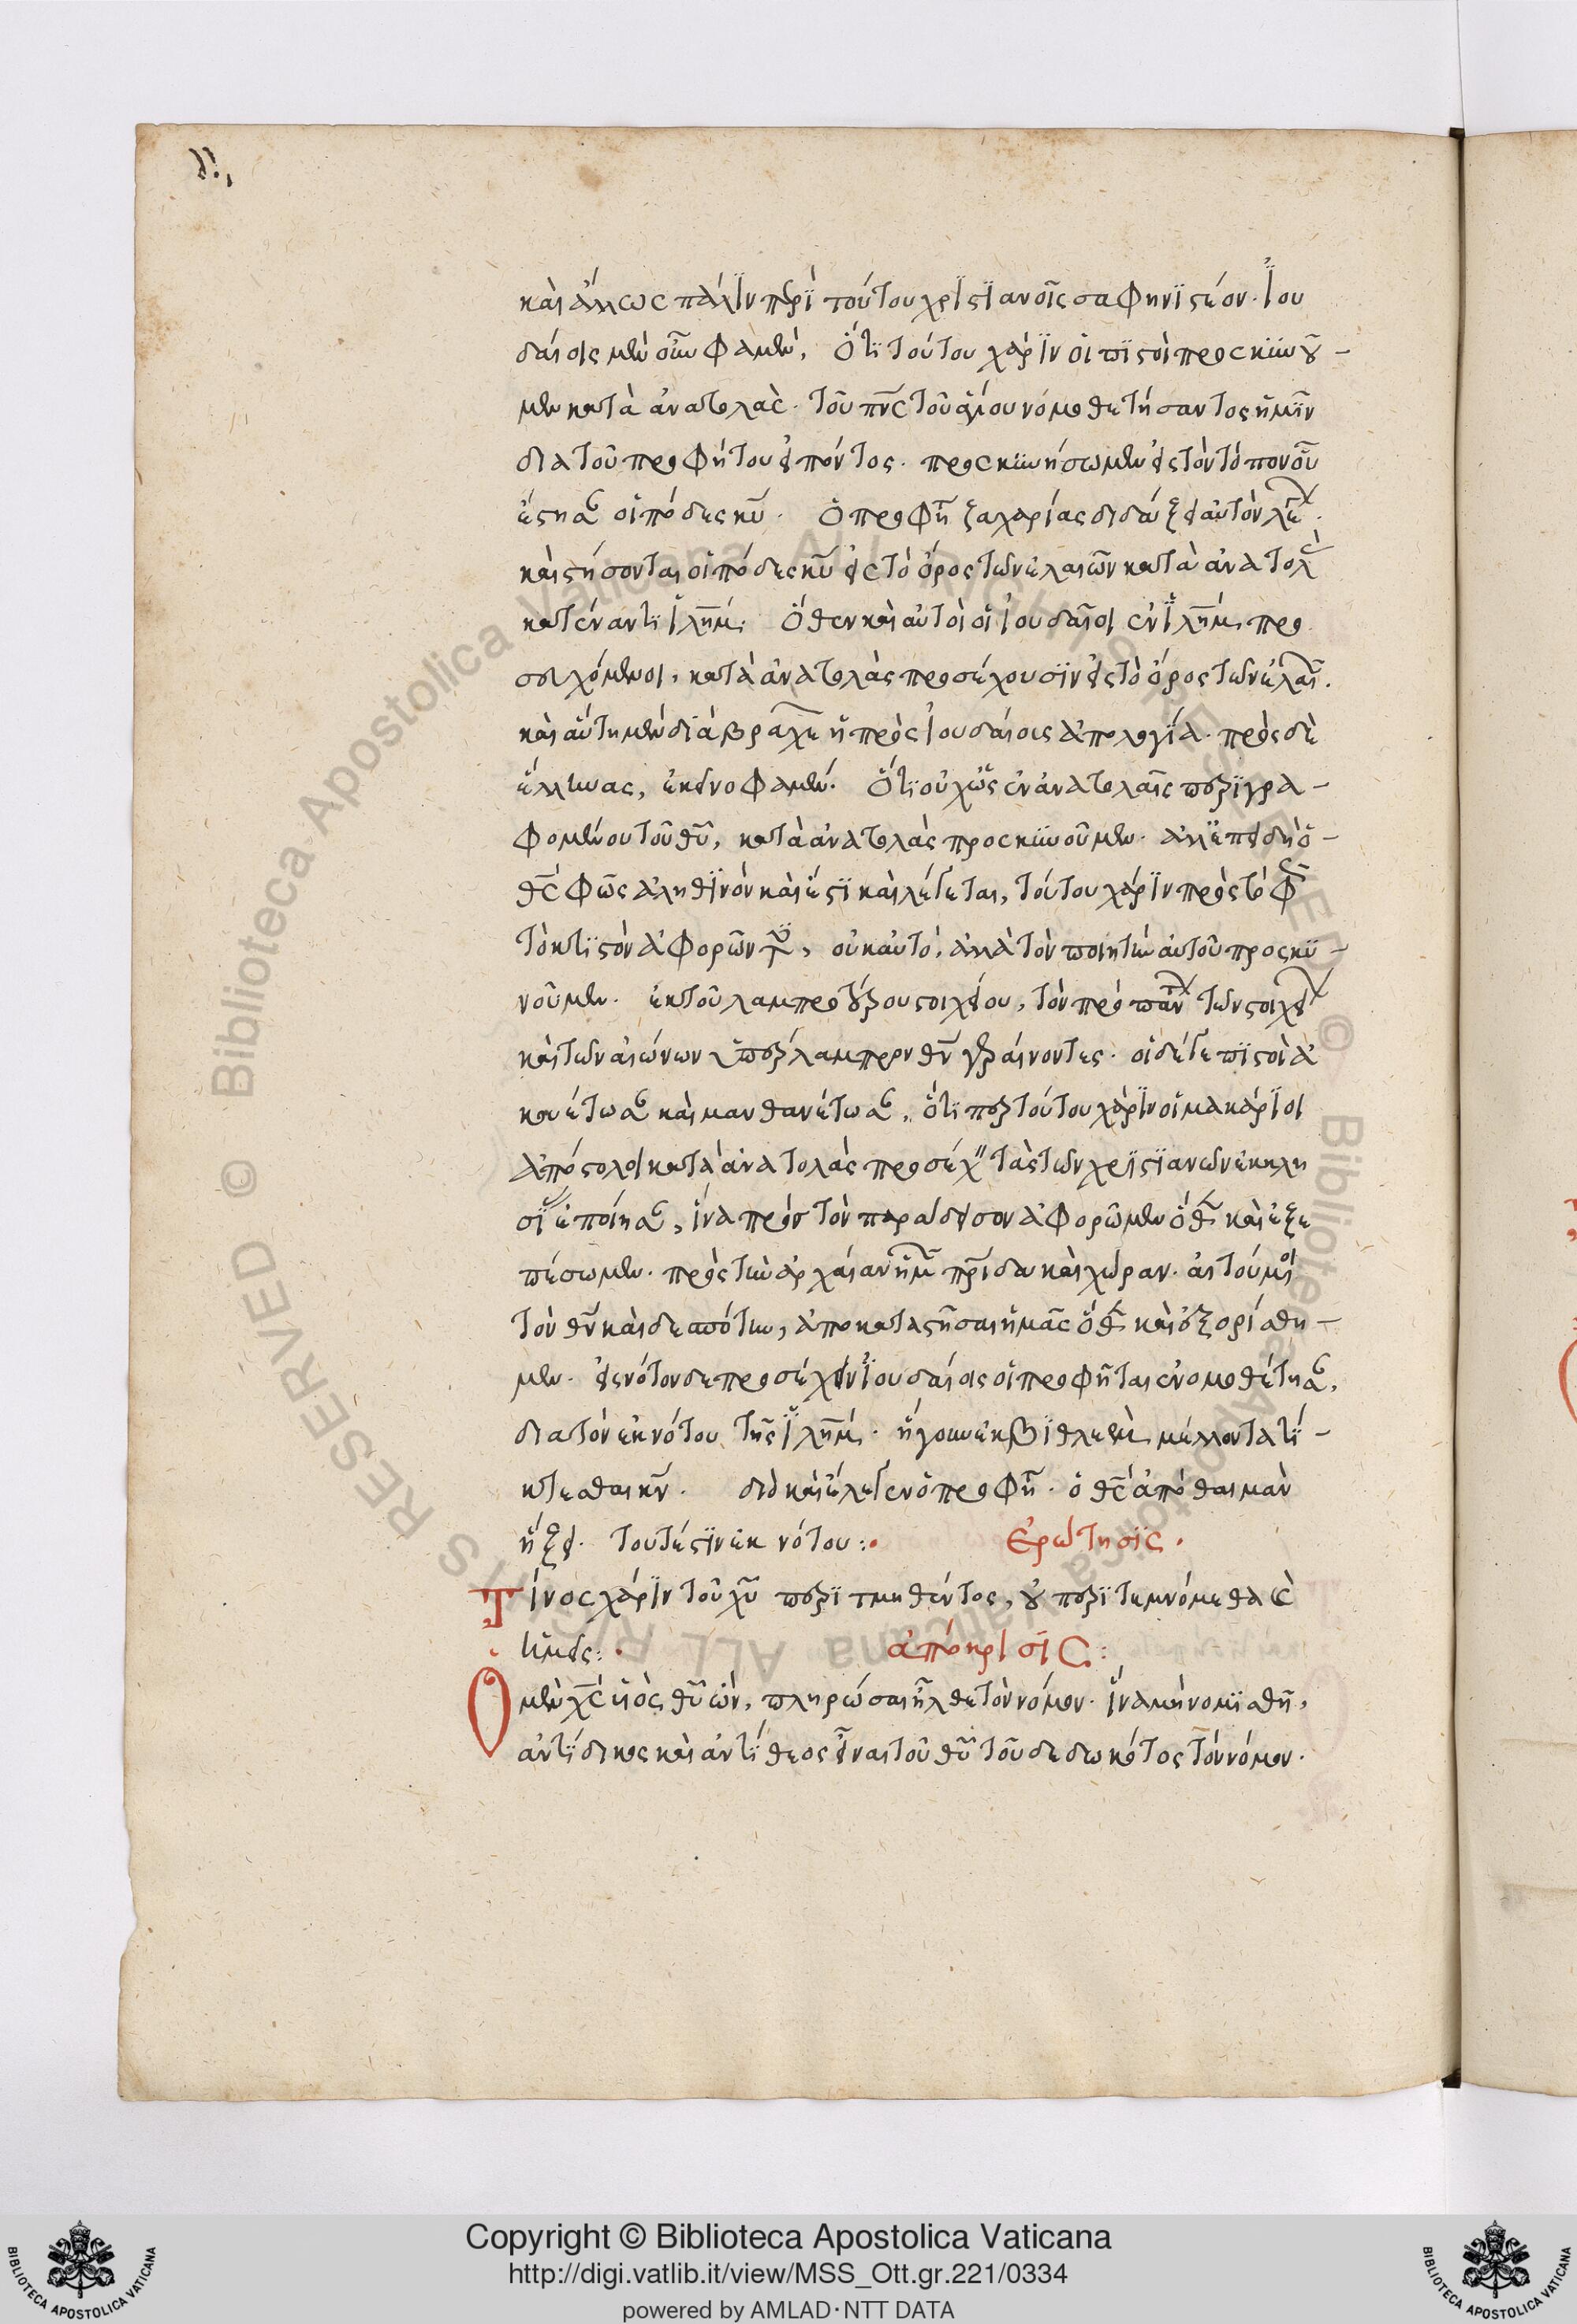 καὶ ἄλλως πάλϊν περὶ τούτου χρϊστϊανοῖς σαφηνϊστέον. Ἰου
δαίοις μὲν οὖν φαμὲν, ὅτι τούτου χάρϊν οἱ πϊστοὶ προσκυνοῦ-
μεν κατὰ ἀνατολὰς. τοῦ πνς τοῦ ἁγίου νομοθετήσαντος ἡμῖν
δια τοῦ προφήτου εἰπόντος. προσκυνήσωμεν εἰς τὸν τόπον οὗ
ἔστησαν οἱ πόδες κυ. ὁ προφη ζαχαρίας διδάξει αὐτὸν λε.
καὶ στήσονται οἱ πόδες κυ εἰς τὸ ὄρος τῶν ἐλαιῶν κατὰ ἀνατολὰ
κατέναντι ἰλημ. ὅθεν καὶ αὐτοὶ οἱ ἰουδαῖοι ἐν ἰλημ προ
σευχόμενοι, κατὰ ἀνατολὰς προσέχουσϊν εἰς τὸ ὄρος τῶν ἐλαι.
καὶ αὕτη μὲν διὰ βραχε ἡ πρὸς ἰουδαίοις ἀπολογία. πρὸς δὲ
ἕλληνας, ἐκεῖνο φαμέν. ὅτι οὐχ ὡς ἐν ἀνατολαῖς περϊγρα-
φομένου τοῦ θυ, κατὰ ἀνατολὰς προσκυνοῦμεν. ἀλλ ἐπειδὴ ὁ-
θς φῶς ἀληθϊνὸν καὶ ἔστϊ καὶ λέγεται, τούτου χάρϊν πρὸς τὸ φ
τὸ κτϊστὸν ἀφορῶν, οὐκ αὐτὸ, ἀλλὰ τὸν ποιητὴν αὐτοῦ προσκυ-
νοῦμεν. ἐκ τοῦ λαμπροτέρου στοιχείου, τὸν πρὸ παν τῶν στοιχεί
καὶ τῶν αἰώνων ὑπέρλαμπρον θν γεραίνοντες. οἱ δέ γε πϊστοὶ ἀ
κουέτωσαν καὶ μανθανέτωσαν, ὅτι περ τούτου χάρϊν οἱ μακάρϊοι
ἀπόστολοι κατὰ ἀνατολὰς προσέχ τὰς τῶν χρϊστϊανῶν ἐκκλη
σϊ ἐποίησαν, ἵνα πρὸς τὸν παράδεισον ἀφορῶμεν ὅθεν καὶ ἐξε
πέσωμεν. πρὸς τὴν ἀρχαίαν ἡμ πρίδα καὶ χώραν. αἰτούμοι
τὸν θν καὶ δεσπότην, ἀποκαταστῆσαι ἡμᾶς ὅθεν καὶ ἐξορίσθη-
μεν. εἰς νότον δε προσέχειν ἰουδαίοις οἱ προφῆται ἐνομοθέτησαν,
δια τὸν ἐκ νότου τῆς ἰλημ. ἤγουν ἐκ βϊθλεὲμ μέλλοντα τί-
κτεσθαι κν. διὸ καὶ ἔλεγεν ὁ προφη. ὁ θς ἀπὸ θαιμὰν
ἥξει. τουτέστϊν ἐκ νότου:.   ἐρώτησϊς.
Τίνος χάρϊν τοῦ χυ περιτμηθέντος, οὐ περϊτεμνόμεθα καὶ
ἡμεῖς:.   ἀπόκρϊσϊς:
Ὁ μὲν χς υἱὸς θυ ὢν, πληρώσαι ἦλθε τὸν νόμον. ἵνα μὴ νομϊσθῆ,
ἀντίδικος καὶ ἀντίθεος εἶναι τοῦ θυ τοῦ δεδωκότος τὸν νόμον.
Copyright © Biblioteca Apostolica Vaticana
http://digi.vatlib.it/view/MSS_Ott.gr.221/0334
powered by AMLAD·NTT DATA